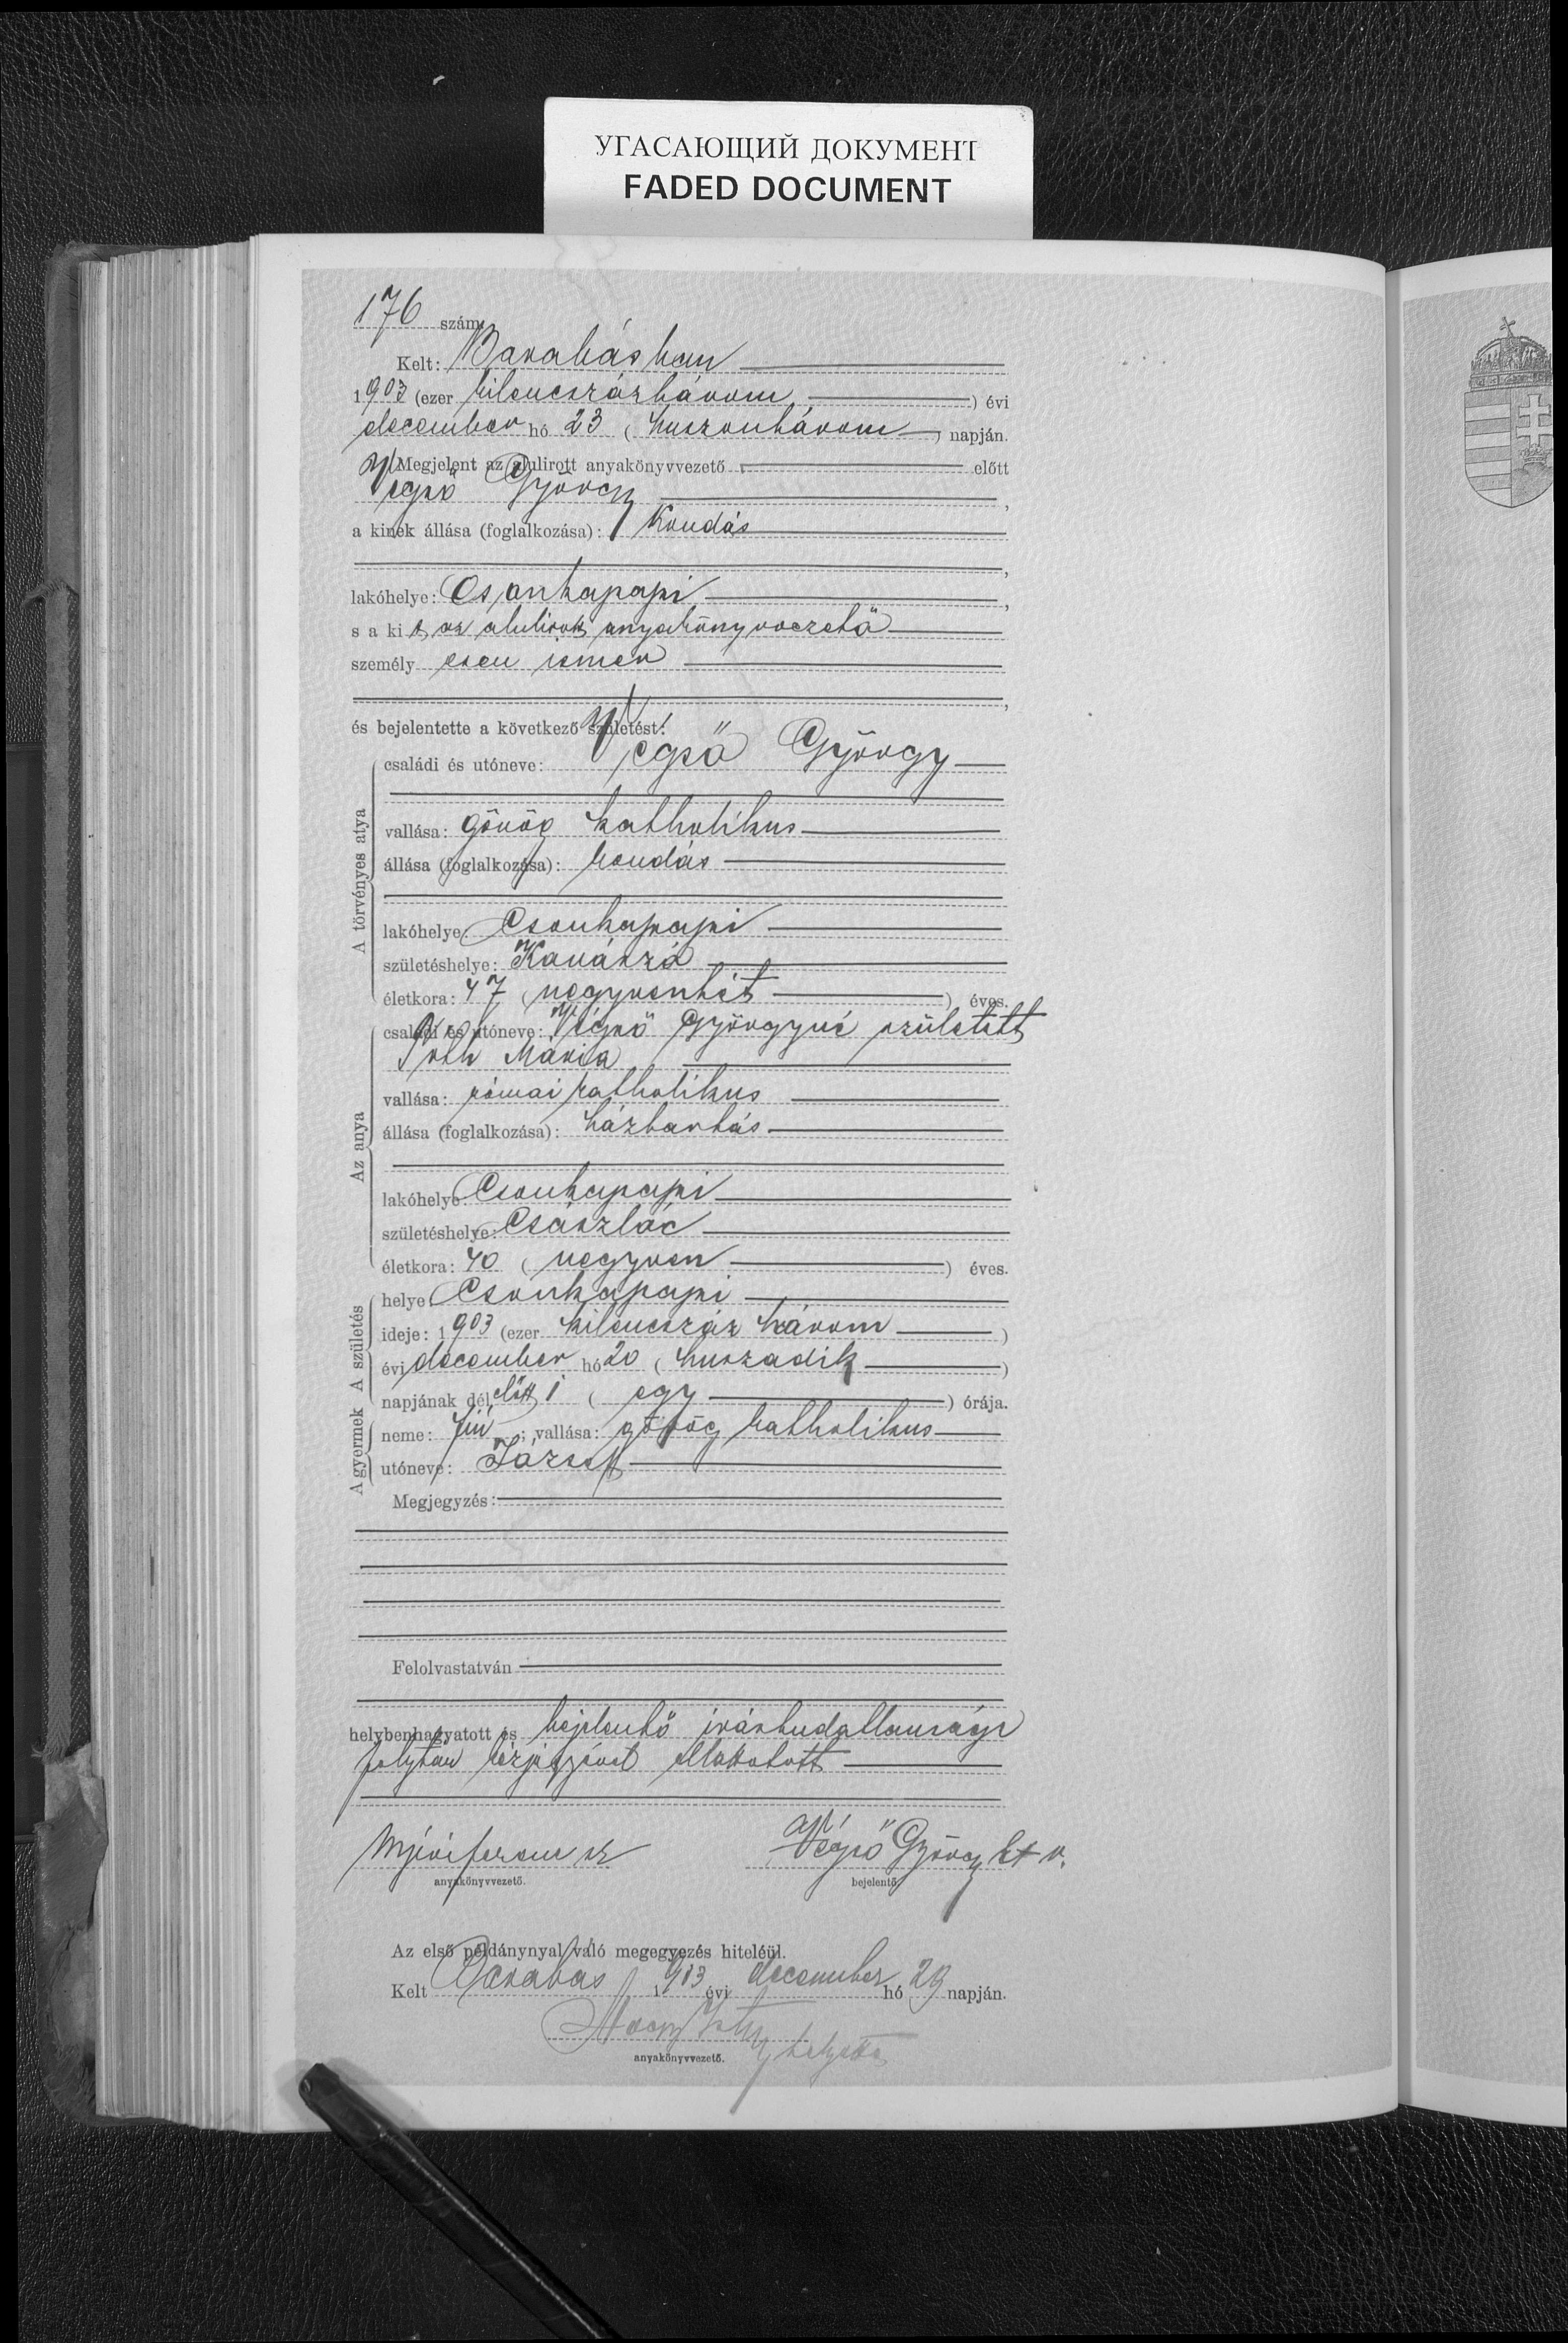 УГАСАЮЩИЙ ДОКУМЕНТ
FADED DOCUMENT
176 szám.
Kelt: Barabásban
1903 (ezer kilencszázhárom) évi
december hó 23 (huszonhárom) napján.
Megjelent az alulirott anyakönyvvezető előtt
Végső György,
a kinek állása (foglalkozása): kondás
,
lakóhelye: Csonkapapi,
s a kit az alulirott anyakönyvvezető
személyesen ismer
,
és bejelentette a következő születést:
A törvényes atya
családi és utóneve: Végső György
vallása: görög katholikus
állása (foglalkozása): kondás
lakóhelye: Csonkapapi
születéshelye:
életkora: 47 (negyvenhét) éves.
Az anya
családi és utóneve: Végső Györgyné született
Mária
vallása: római katholikus
állása (foglalkozása): háztartás
lakóhelye: Csonkapapi
születéshelye: Császlóc
életkora: 40 (negyven) éves.
A születés
helye: Csonkapapi
ideje: 1903 (ezer kilencszáz három)
évi december hó 20 (huszadik)
napjának dél előtt 1 (egy) órája.
A gyermek
neme: fiú; vallása: görög katholikus
utóneve: József
Megjegyzés:
Felolvastatván
helybenhagyatott és bejelentő irástudatlansága
folytán kézjegyével elláttatott
anyakönyvvezető.
Végső György k+v.
bejelentő.
Az első példánynyal való megegyezés hiteléül.
Kelt Barabás 1903 évi december hó 29 napján.
helyettes
anyakönyvvezető.